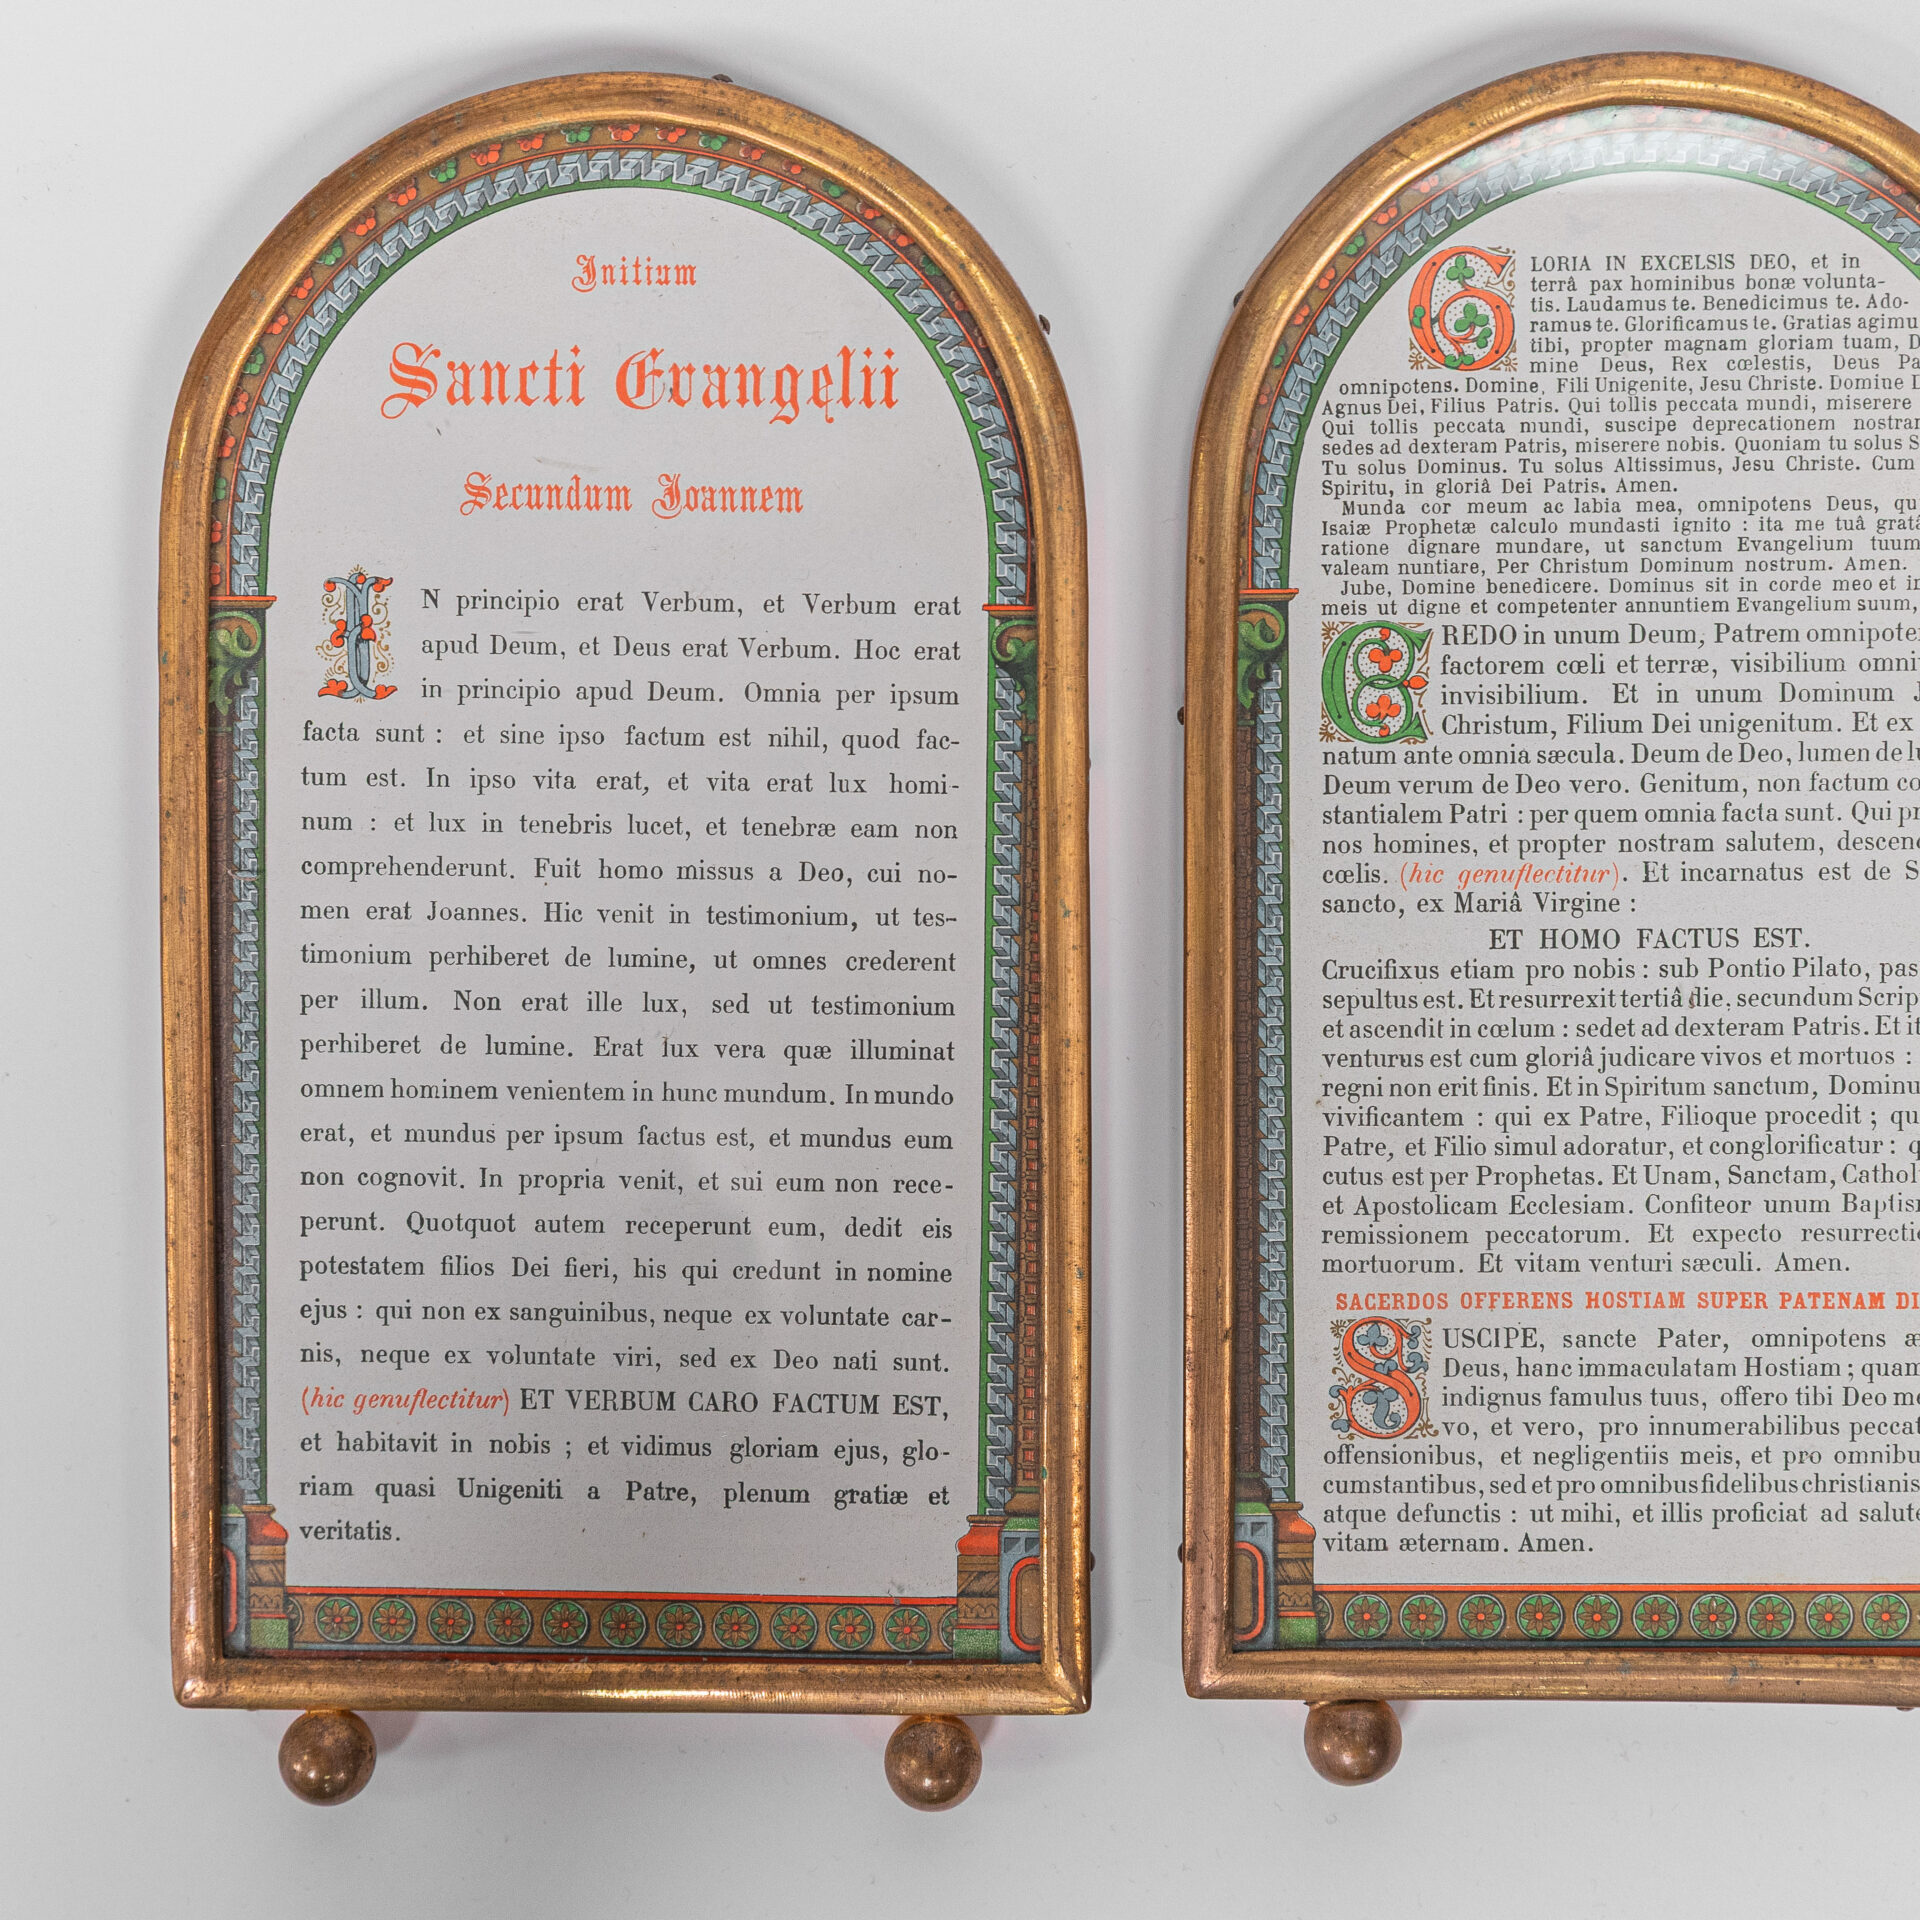 Initium
Sancti Evangelii
Secundum Joannem
IN principio erat Verbum, et Verbum erat
apud Deum, et Deus erat Verbum. Hoc erat
in principio apud Deum. Omnia per ipsum
facta sunt : et sine ipso factum est nihil, quod fac-
tum est. In ipso vita erat, et vita erat lux homi-
num : et lux in tenebris lucet, et tenebræ eam non
comprehenderunt. Fuit homo missus a Deo, cui no-
men erat Joannes. Hic venit in testimonium, ut tes-
timonium perhiberet de lumine, ut omnes crederent
per illum. Non erat ille lux, sed ut testimonium
perhiberet de lumine. Erat lux vera quæ illuminat
omnem hominem venientem in hunc mundum. In mundo
erat, et mundus per ipsum factus est, et mundus eum
non cognovit. In propria venit, et sui eum non rece-
perunt. Quotquot autem receperunt eum, dedit eis
potestatem filios Dei fieri, his qui credunt in nomine
ejus : qui non ex sanguinibus, neque ex voluntate car-
nis, neque ex voluntate viri, sed ex Deo nati sunt.
(hic genuflectitur) ET VERBUM CARO FACTUM EST,
et habitavit in nobis ; et vidimus gloriam ejus, glo-
riam quasi Unigeniti a Patre, plenum gratiæ et
veritatis.
GLORIA IN EXCELSIS DEO, et in
terrâ pax hominibus bonæ volunta-
tis. Laudamus te. Benedicimus te. Ado-
ramus te. Glorificamus te. Gratias agimu
tibi, propter magnam gloriam tuam, D
mine Deus, Rex cœlestis, Deus Pa
omnipotens. Domine, Fili Unigenite, Jesu Christe. Domine D
Agnus Dei, Filius Patris. Qui tollis peccata mundi, miserere
Qui tollis peccata mundi, suscipe deprecationem nostram
sedes ad dexteram Patris, miserere nobis. Quoniam tu solus S
Tu solus Dominus. Tu solus Altissimus, Jesu Christe. Cum
Spiritu, in gloriâ Dei Patris. Amen.
Munda cor meum ac labia mea, omnipotens Deus, qu
Isaiæ Prophetæ calculo mundasti ignito : ita me tuâ gratâ
ratione dignare mundare, ut sanctum Evangelium tuum
valeam nuntiare, Per Christum Dominum nostrum. Amen.
Jube, Domine benedicere. Dominus sit in corde meo et in
meis ut digne et competenter annuntiem Evangelium suum,
CREDO in unum Deum, Patrem omnipoter
factorem cœli et terræ, visibilium omni
invisibilium. Et in unum Dominum J
Christum, Filium Dei unigenitum. Et ex
natum ante omnia sæcula. Deum de Deo, lumen de lu
Deum verum de Deo vero. Genitum, non factum co
stantialem Patri : per quem omnia facta sunt. Qui pr
nos homines, et propter nostram salutem, descend
cœlis. (hic genuflectitur). Et incarnatus est de S
sancto, ex Mariâ Virgine :
ET HOMO FACTUS EST.
Crucifixus etiam pro nobis : sub Pontio Pilato, pas
sepultus est. Et resurrexit tertiâ die, secundum Scrip
et ascendit in cœlum : sedet ad dexteram Patris. Et it
venturus est cum gloriâ judicare vivos et mortuos :
regni non erit finis. Et in Spiritum sanctum, Dominu
vivificantem : qui ex Patre, Filioque procedit ; qu
Patre, et Filio simul adoratur, et conglorificatur : q
cutus est per Prophetas. Et Unam, Sanctam, Cathol
et Apostolicam Ecclesiam. Confiteor unum Baptis
remissionem peccatorum. Et expecto resurrectio
mortuorum. Et vitam venturi sæculi. Amen.
SACERDOS OFFERENS HOSTIAM SUPER PATENAM DI
SUSCIPE, sancte Pater, omnipotens æ
Deus, hanc immaculatam Hostiam ; quam
indignus famulus tuus, offero tibi Deo me
vo, et vero, pro innumerabilibus peccat
offensionibus, et negligentiis meis, et pro omnibu
cumstantibus, sed et pro omnibus fidelibus christianis
atque defunctis : ut mihi, et illis proficiat ad salute
vitam æternam. Amen.